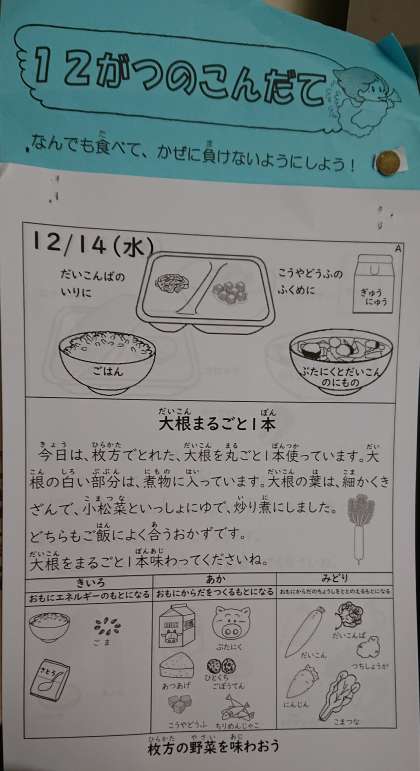 12がつのこんだて
なんでも食べて、かぜに負けないようにしよう！
12/14(水)
A
だいこんばの
いりに
こうやどうふの
ふくめに
ぎゅう
にゅう
ごはん
ぶたにくとだいこん
のにもの
大根まるごと1本
今日は、枚方でとれた、大根を丸ごと1本使っています。大
根の白い部分は、煮物に入っています。大根の葉は、細かくき
ざんで、小松菜といっしょにゆで、炒り煮にしました。
どちらもご飯によく合うおかずです。
大根をまるごと1本味わってくださいね。
きいろ
おもにエネルギーのもとになる
ごま
さとう
あか
おもにからだをつくるもとになる
MILK
ぶたにく
あつあげ
ひとくち
ごぼうてん
こうやどうふ
ちりめんじゃこ
みどり
おもにからだのちょうしをととのえるもとになる
だいこん
だいこんば
つちしょうが
にんじん
こまつな
枚方の野菜を味わおう